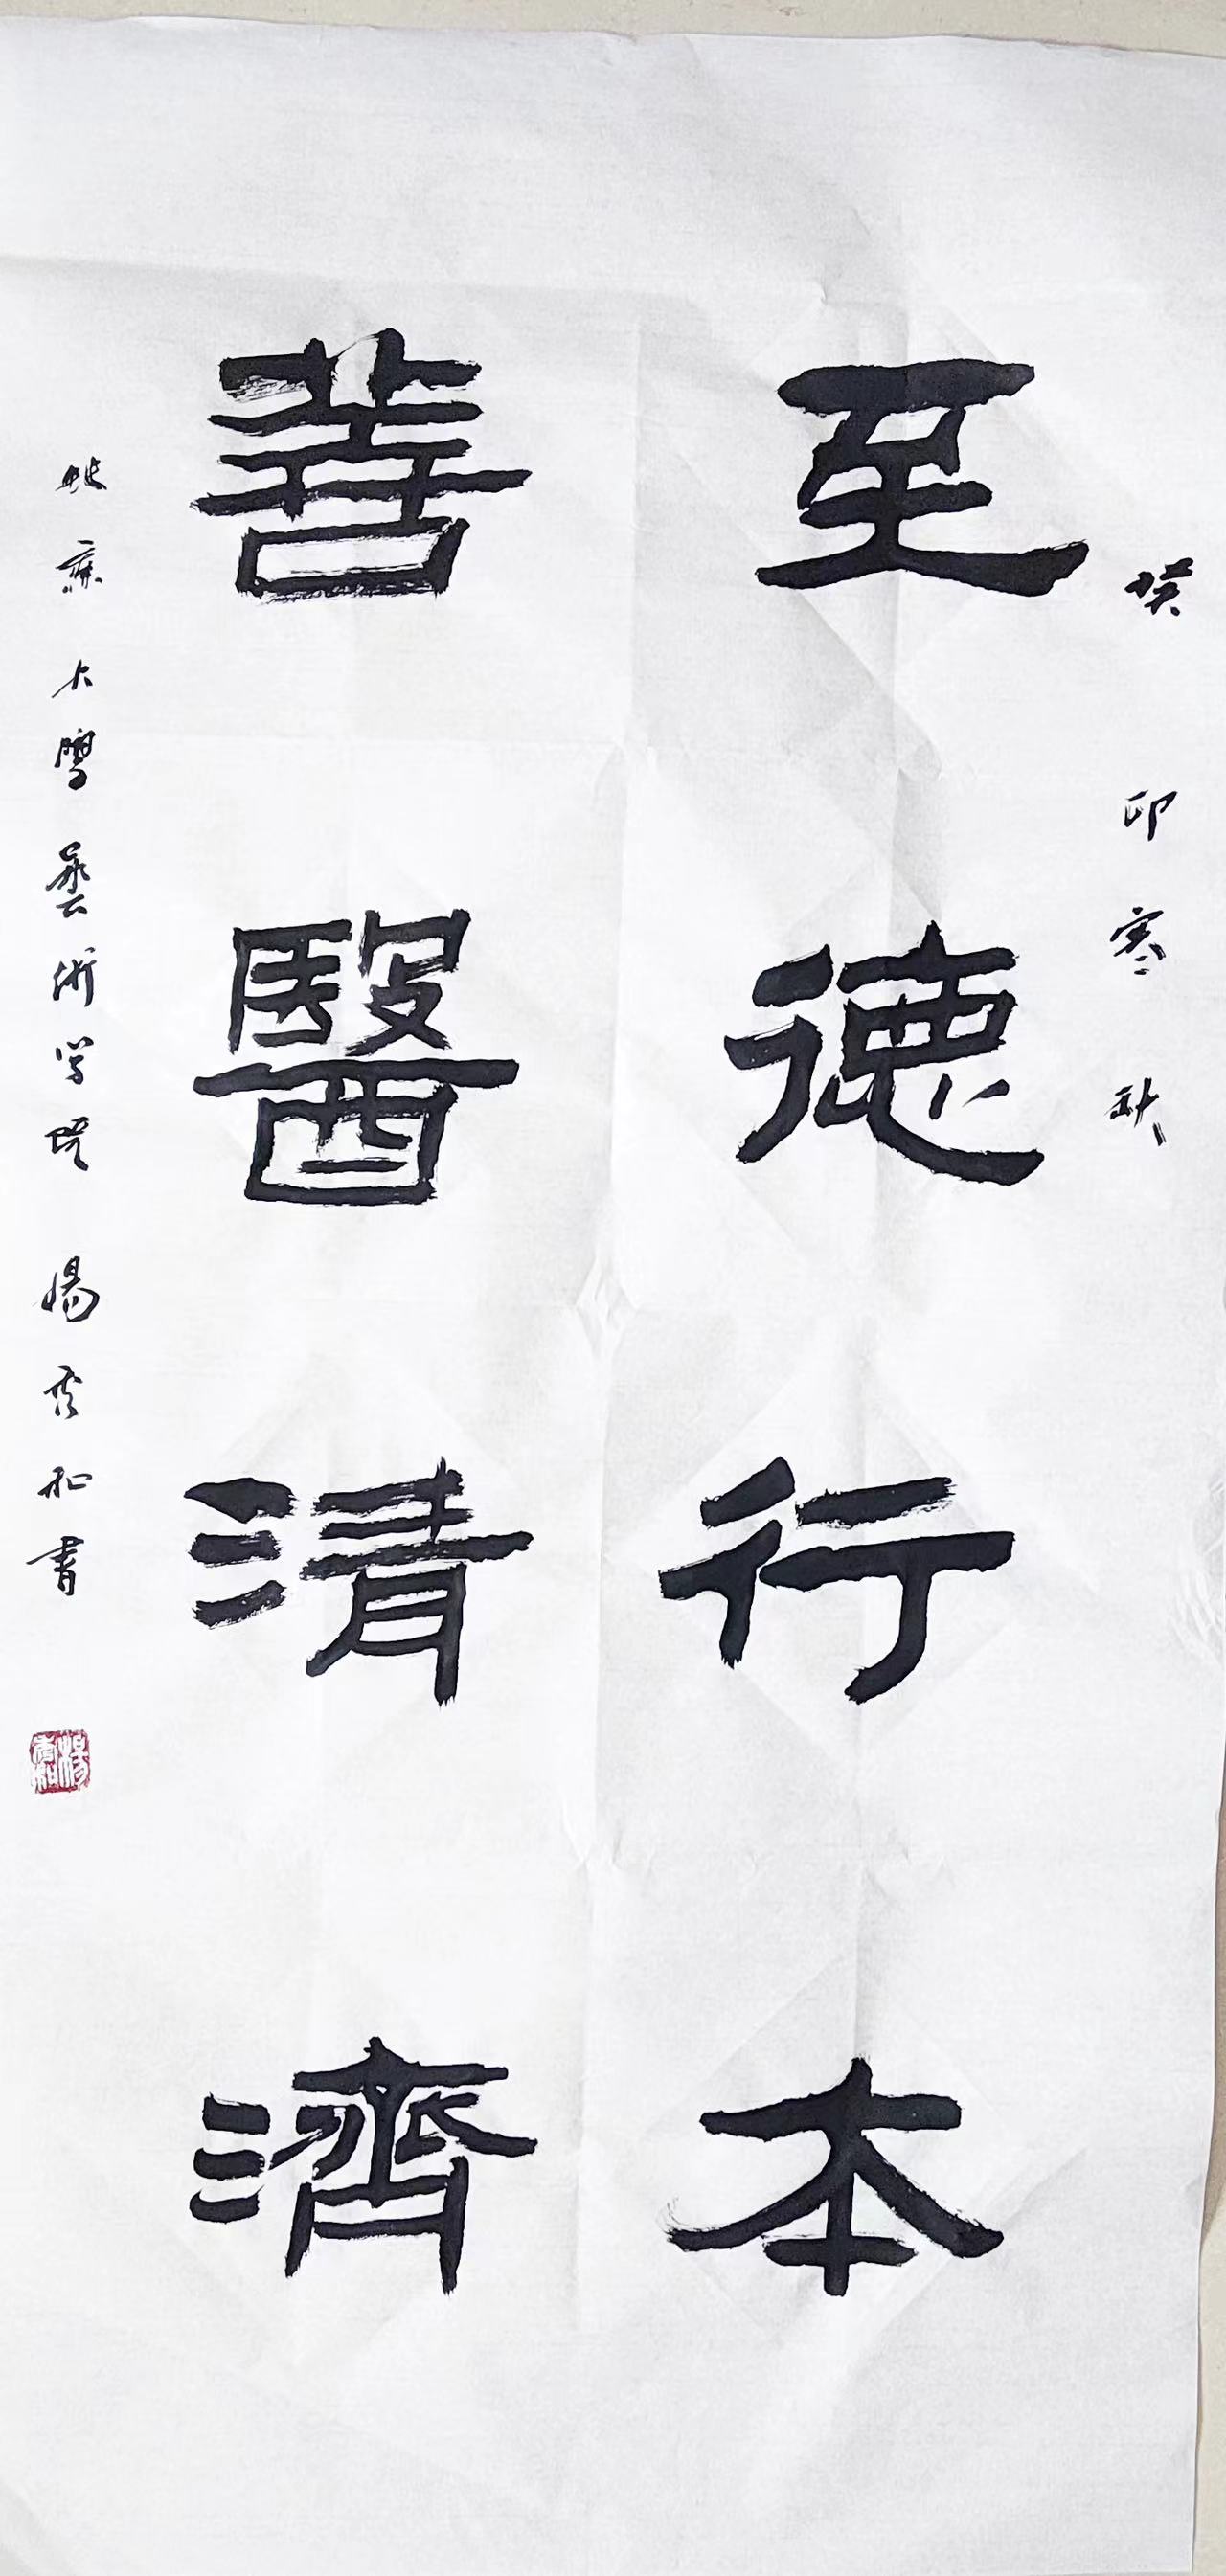 癸卯寒秋
至德行本
善醫清濟
北京大學藝術学院 楊秀和書